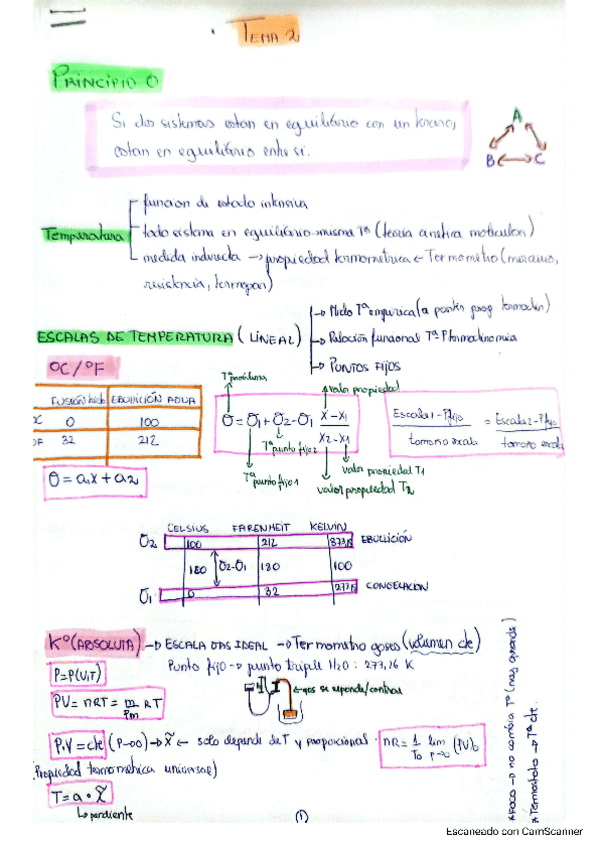 TEMA 2
PRINCIPIO 0
Si dos sistemas estan en equilibrio con un tercero,
estan en equilibrio entre si.
A
B C
Temperatura
funcion de estado intensiva
todo sistema en equilibrio misma Tª (teoria cinetica molecular)
medida indirecta → propiedad termometrica ← Termometro (mercurio,
resistencia, termopar)
ESCALAS DE TEMPERATURA (LINEAL)
Tª empirica (a partir prop
Relación funcional Tª
PUNTOS FIJOS
ºC/ºF
FUSIÓN hielo EBULLICIÓN AGUA
ºC 0 100
ºF 32 212
Tª problema
valor propiedad
Ʊ = Ʊ1 + Ʊ2 - Ʊ1 X - X1
X2 - X1
Tª punto fijo 2
Tª punto fijo 1
valor propiedad T1
valor propiedad T2
Escala 1 - Pfijo = Escala 2 - Pfijo
tamaño escala tamaño escala
θ = a1x + a2
CELSIUS FARENHEIT KELVIN
Ʊ2 100 212 373,15 EBULLICIÓN
180 Ʊ2-Ʊ1 180 100
Ʊ1 0 32 CONGELACION
Kº (ABSOLUTA) → ESCALA GAS IDEAL → Termometro gases (volumen cte)
Punto fijo → punto triple H2O : 273,16 K
P = P(V,T)
gas se expande/contrae
PV = nRT = m/Pm RT
P.V = cte (P→0) → x̃ ← solo depende de T y proporcional. nR = 1/T0 lim p→0 (PV)0
(Propiedad termometrica universal)
T = a · x̃
pendiente
* FOCO → no cambia Tª (muy grande)
* Termostato → Tª cte.
(1)
Escaneado con CamScanner